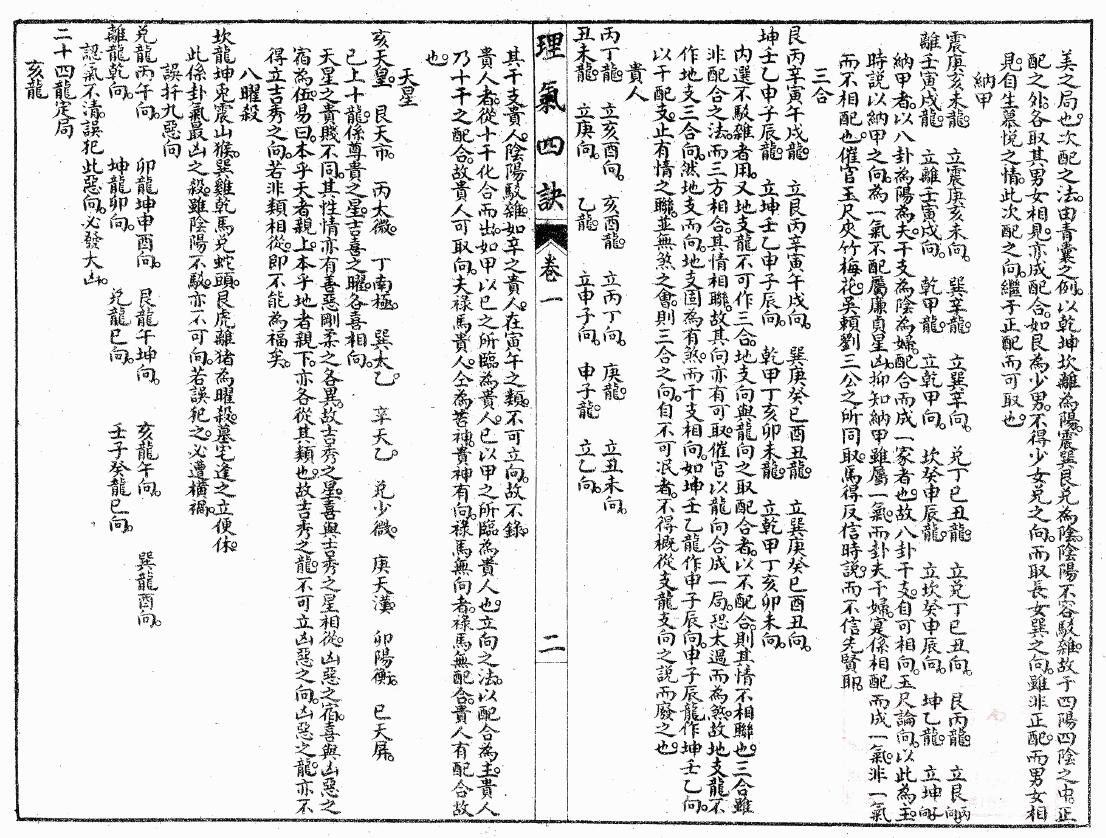 美之局也次配之法由青囊之例以乾坤坎離為陽震巽艮兌為陰陰陽不容駁雜故于四陽四陰之中正
配之外各取其男女相見亦成配合如艮為少男不得少女兌之向而取長女巽之向雖非正配而男女相
見自生慕悅之情此次配之向繼于正配而可取也
納甲
震庚亥未龍 立震庚亥未向 巽辛龍 立巽辛向 兌丁巳丑龍 立兌丁巳丑向 艮丙龍 立艮丙向
離壬寅戌龍 立離壬寅戌向 乾甲龍 立乾甲向 坎癸申辰龍 立坎癸申辰向 坤乙龍 立坤乙向
納甲者以八卦為陽為夫干支為陰為婦配合而成一家者也故八卦干支自可相向玉尺論向以此為主
時說以納甲之向為一氣不配屬廉貞星凶抑知納甲雖屬一氣而卦夫干婦寔係相配而成一氣非一氣
而不相配也催官玉尺夾竹梅花吳賴劉三公之所同取焉得反信時說而不信先賢耶
三合
艮丙辛寅午戌龍 立艮丙辛寅午戌向 巽庚癸巳酉丑龍 立巽庚癸巳酉丑向
坤壬乙申子辰龍 立坤壬乙申子辰向 乾甲丁亥卯未龍 立乾甲丁亥卯未向
內選不駁雜者用又地支龍不可作三合地支向與龍向之取配合者以不配合則其情不相聯也三合雖
非配合之法而三方相合其情相聯故其向亦有可取催官以龍向合成一局恐太過而為煞故地支龍不
作地支三合向然地支而向地支固為有煞而干支相向如坤壬乙龍作申子辰向申子辰龍作坤壬乙向
以干配支止有情之聯並無煞之會則三合之向自不可泯者不得概從支龍支向之說而廢之也
貴人
丙丁龍 立亥酉向 亥酉龍 立丙丁向 庚龍 立丑未向
丑未龍 立庚向 乙龍 立申子向 申子龍 立乙向
理氣四訣 卷一 二
其干支貴人陰陽駁雜如辛之貴人在寅午之類不可立向故不錄
貴人者從十干化合而出如甲以巳之所臨為貴人巳以甲之所臨為貴人也立向之法以配合為主貴人
乃十干之配合故貴人可取向夫祿馬貴人仝為善神貴神有向祿馬無向者祿馬無配合貴人有配合故
也
天星
亥天皇 艮天市 丙太微 丁南極 巽太乙 辛天乙 兌少微 庚天漢 卯陽衡 巳天屏
已上十龍係尊貴之星吉喜之曜各喜相向
天星之貴賤不同其性情亦有善惡剛柔之各異故吉秀之星喜與吉秀之星相從凶惡之宿喜與凶惡之
宿為伍易曰本乎天者親上本乎地者親下亦各從其類也故吉秀之龍不可立凶惡之向凶惡之龍亦不
得立吉秀之向若非類相從即不能為福矣
八曜殺
坎龍坤兔震山猴巽雞乾馬兌蛇頭艮虎離猪為曜殺墓宅逢之立便休
此係卦氣最凶之殺雖陰陽不駁亦不可向若誤犯之必遭橫禍
誤扦九惡向
兌龍丙午向 卯龍坤申酉向 艮龍午坤向 亥龍午向 巽龍酉向
離龍乾向 坤龍卯向 兌龍巳向 壬子癸龍巳向
認氣不清誤犯此惡向必發大凶
二十四龍定局
亥龍